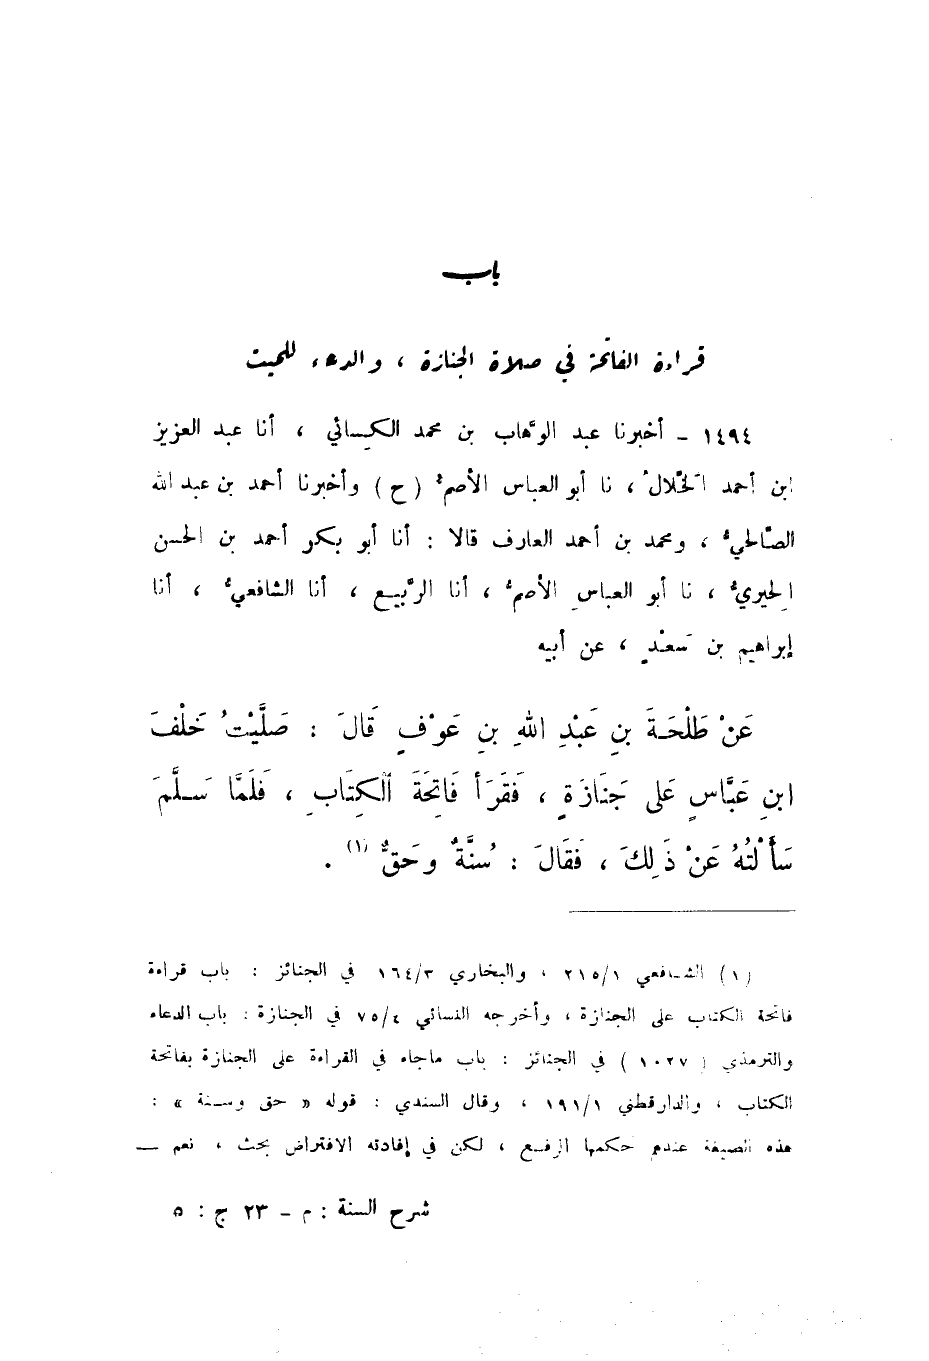 باب
قراءة الفاتحة في صلاة الجنازة ، والدعاء للميت
١٤٩٤ ـ أخبرنا عبد الوهّاب بن محمد الكسائي ، أنا عبد العزيز
ابن أحمد الخلّالُ ، نا أبو العباس الأصمُّ ( ح ) وأخبرنا أحمد بن عبد الله
الصّالحيُّ ، ومحمد بن أحمد العارف قالا : أنا أبو بكر أحمد بن الحسن
الحِيريُّ ، نا أبو العباسِ الأصمُّ ، أنا الرَّبيع ، أنا الشافعيُّ ، أنا
إبراهيم بن سَعْدٍ ، عن أبيه
عَنْ طَلْحَةَ بنِ عَبْدِ اللهِ بنِ عَوْفٍ قَالَ : صَلَّيْتُ خَلْفَ
ابنِ عَبَّاسٍ عَلى جَنَازَةٍ ، فَقَرَأ فَاتِحَةَ الكِتَابِ ، فَلَمَّا سَلَّمَ
سَأَلْتُهُ عَنْ ذَلِكَ ، فَقَالَ : سُنَّةٌ وحَقٌّ (١) .
(١) الشافعي ٢١٥/١ ، والبخاري ١٦٤/٣ في الجنائز : باب قراءة
فاتحة الكتاب على الجنازة ، وأخرجه النسائي ٧٥/٤ في الجنازة : باب الدعاء
والترمذي ( ١٠٢٧ ) في الجنائز : باب ماجاء في القراءة على الجنازة بفاتحة
الكتاب ، والدارقطني ١٩١/١ ، وقال السندي : قوله « حق وسنة » :
هذه الصيغة عندهم حكمها الرفع ، لكن في إفادته الافتراض بحث ، نعم ـــ
شرح السنة : م ـ ٢٣ ج : ٥